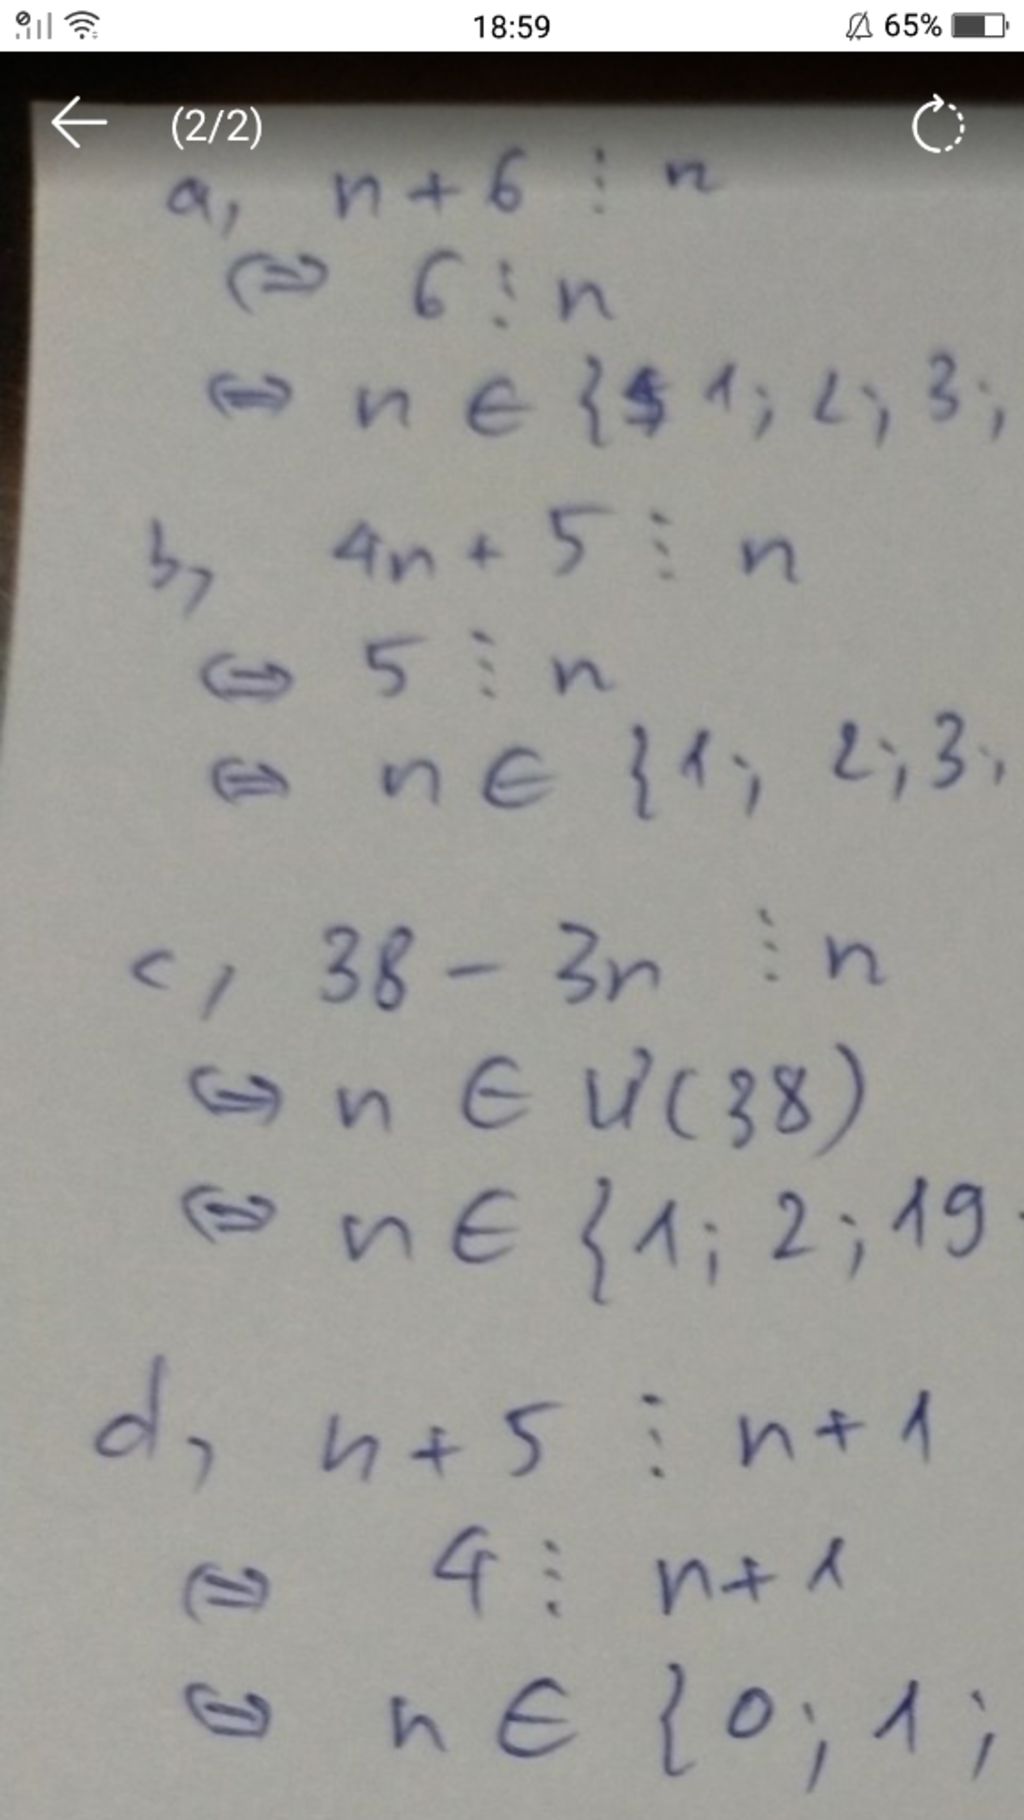 18:59
65%
(2/2)
a, n + 6 ⋮ n
⇔ 6 ⋮ n
⇔ n ∈ { 1; 2; 3;
b, 4n + 5 ⋮ n
⇔ 5 ⋮ n
⇔ n ∈ {1; 2; 3;
c, 38 - 3n ⋮ n
⇔ n ∈ Ư(38)
⇔ n ∈ {1; 2; 19
d, n + 5 ⋮ n + 1
⇔ 4 ⋮ n + 1
⇔ n ∈ {0; 1;